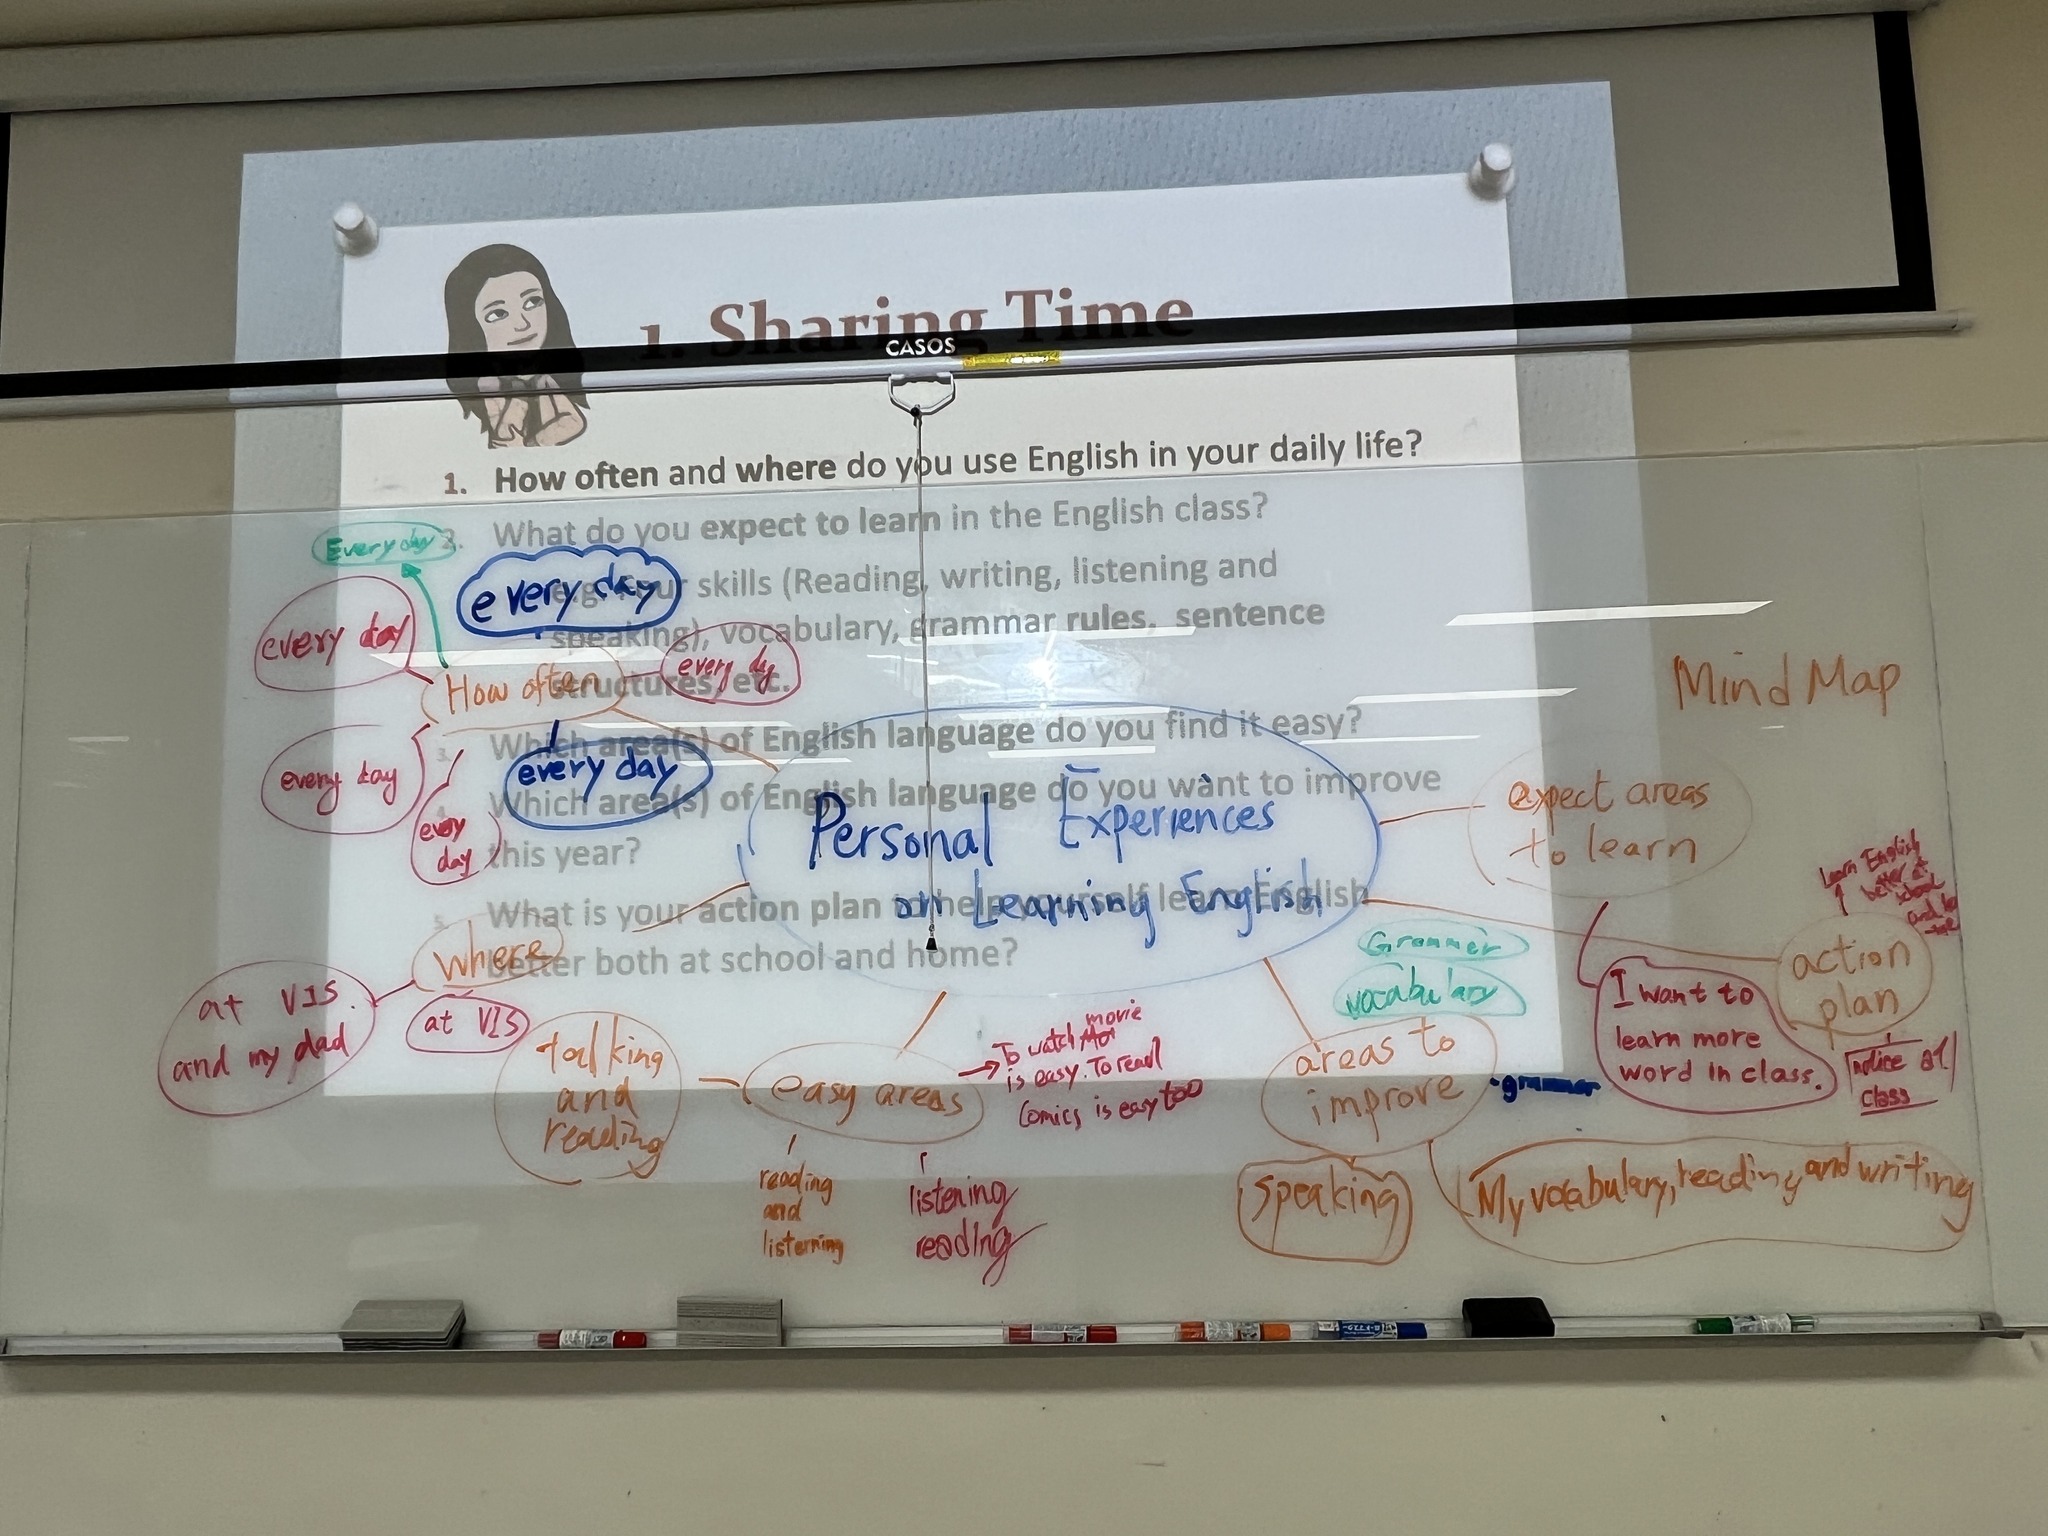 1. Sharing Time
CASOS
1. How often and where do you use English in your daily life?
2. What do you expect to learn in the English class?
skills (Reading, writing, listening and
speaking), vocabulary, grammar rules, sentence
structures, etc.
3. Which area(s) of English language do you find it easy?
4. Which area(s) of English language do you want to improve
this year?
5. What is your action plan to help yourself learn English
better both at school and home?
Mind Map
Personal Experiences
on Learning English
How often
Every day
every day
every day
every day
every day
every day
every
day
where
at VIS.
and my dad
at VIS
easy areas
talking
and
reading
reading
and
listerning
listening
reading
To watch movie
is easy. To read
Comics is easy too
areas to
improve
Grammer
vocabulary
grammar
speaking
My vocabulary, reading, and writing
expect areas
to learn
I want to
learn more
word in class.
action
plan
Learn English
better at
school
and
class